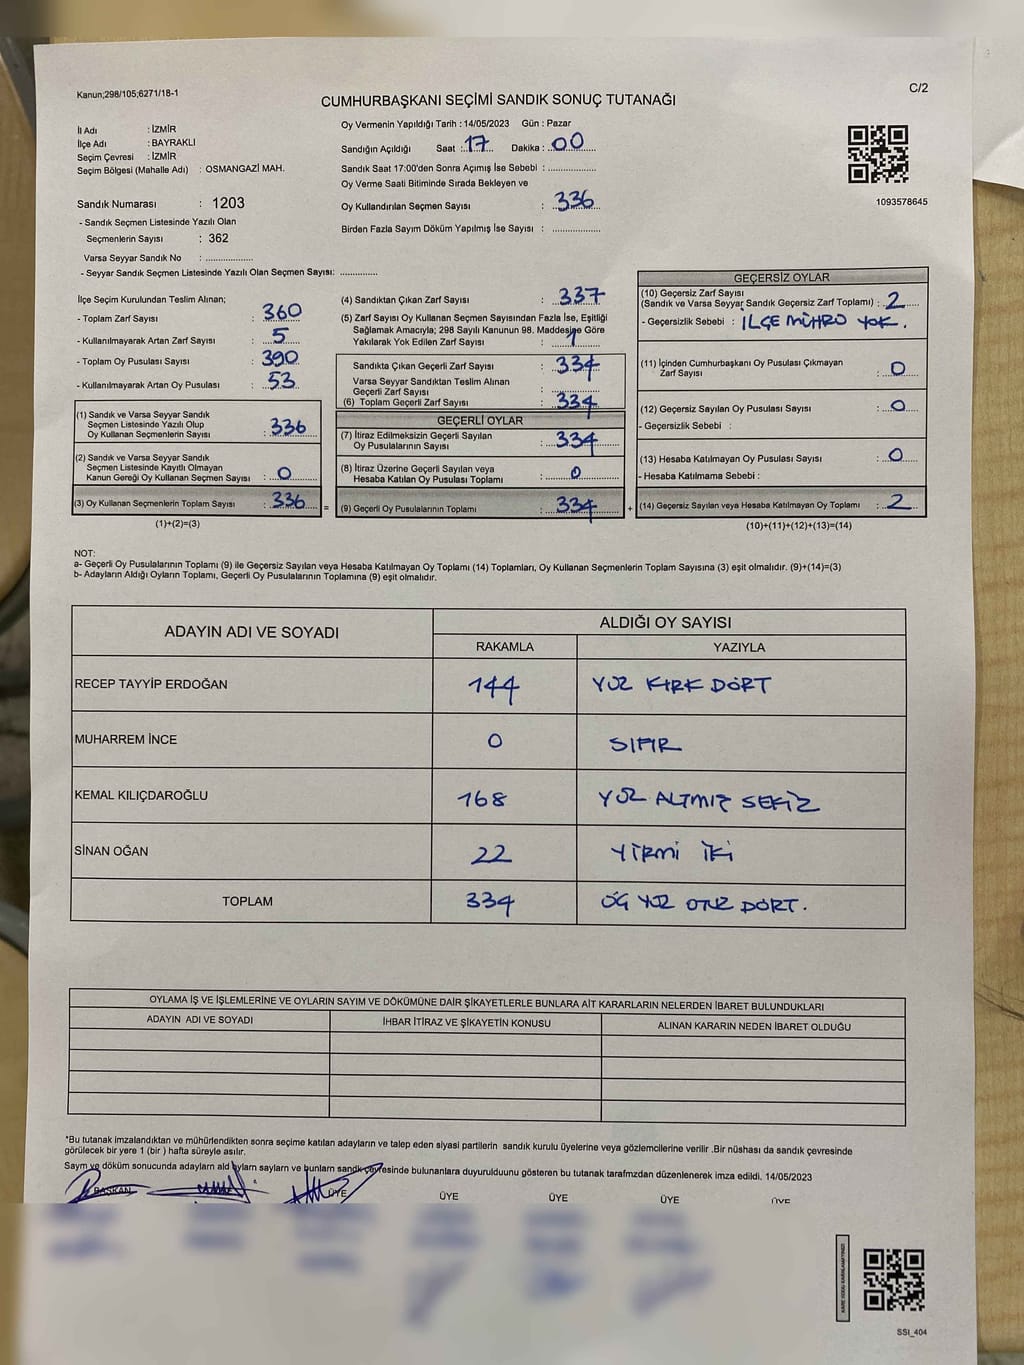 Kanun;298/105;6271/18-1
C/2
CUMHURBAŞKANI SEÇİMİ SANDIK SONUÇ TUTANAĞI
İl Adı : İZMİR
İlçe Adı : BAYRAKLI
Seçim Çevresi : İZMİR
Seçim Bölgesi (Mahalle Adı) : OSMANGAZİ MAH.
Sandık Numarası : 1203
- Sandık Seçmen Listesinde Yazılı Olan
Seçmenlerin Sayısı : 362
Varsa Seyyar Sandık No : ..................
- Seyyar Sandık Seçmen Listesinde Yazılı Olan Seçmen Sayısı: ..............
Oy Vermenin Yapıldığı Tarih : 14/05/2023 Gün : Pazar
Sandığın Açıldığı Saat : 17 Dakika : 00
Sandık Saat 17:00'den Sonra Açımış İse Sebebi : ..................
Oy Verme Saati Bitiminde Sırada Bekleyen ve
Oy Kullandırılan Seçmen Sayısı : 336
Birden Fazla Sayım Döküm Yapılmış İse Sayısı : ..................
1093578645
İlçe Seçim Kurulundan Teslim Alınan;
- Toplam Zarf Sayısı : 360
- Kullanılmayarak Artan Zarf Sayısı : 5
- Toplam Oy Pusulası Sayısı : 390
- Kullanılmayarak Artan Oy Pusulası : 53
(1) Sandık ve Varsa Seyyar Sandık
Seçmen Listesinde Yazılı Olup
Oy Kullanan Seçmenlerin Sayısı : 336
(2) Sandık ve Varsa Seyyar Sandık
Seçmen Listesinde Kayıtlı Olmayan
Kanun Gereği Oy Kullanan Seçmen Sayısı : 0
(3) Oy Kullanan Seçmenlerin Toplam Sayısı : 336
(1)+(2)=(3)
=
(4) Sandıktan Çıkan Zarf Sayısı : 337
(5) Zarf Sayısı Oy Kullanan Seçmen Sayısından Fazla İse, Eşitliği
Sağlamak Amacıyla; 298 Sayılı Kanunun 98. Maddesine Göre
Yakılarak Yok Edilen Zarf Sayısı : 1
Sandıkta Çıkan Geçerli Zarf Sayısı : 334
Varsa Seyyar Sandıktan Teslim Alınan
Geçerli Zarf Sayısı : ..................
(6) Toplam Geçerli Zarf Sayısı : 334
GEÇERLİ OYLAR
(7) İtiraz Edilmeksizin Geçerli Sayılan
Oy Pusulalarının Sayısı : 334
(8) İtiraz Üzerine Geçerli Sayılan veya
Hesaba Katılan Oy Pusulası Toplamı : 0
(9) Geçerli Oy Pusulalarının Toplamı : 334
+
GEÇERSİZ OYLAR
(10) Geçersiz Zarf Sayısı
(Sandık ve Varsa Seyyar Sandık Geçersiz Zarf Toplamı) : 2
- Geçersizlik Sebebi : İLÇE MÜHRÜ YOK.
(11) İçinden Cumhurbaşkanı Oy Pusulası Çıkmayan
Zarf Sayısı : 0
(12) Geçersiz Sayılan Oy Pusulası Sayısı : 0
- Geçersizlik Sebebi :
(13) Hesaba Katılmayan Oy Pusulası Sayısı : 0
- Hesaba Katılmama Sebebi :
(14) Geçersiz Sayılan veya Hesaba Katılmayan Oy Toplamı : 2
(10)+(11)+(12)+(13)=(14)
NOT:
a- Geçerli Oy Pusulalarının Toplamı (9) ile Geçersiz Sayılan veya Hesaba Katılmayan Oy Toplamı (14) Toplamları, Oy Kullanan Seçmenlerin Toplam Sayısına (3) eşit olmalıdır. (9)+(14)=(3)
b- Adayların Aldığı Oyların Toplamı, Geçerli Oy Pusulalarının Toplamına (9) eşit olmalıdır.
ADAYIN ADI VE SOYADI
ALDIĞI OY SAYISI
RAKAMLA YAZIYLA
RECEP TAYYİP ERDOĞAN 144 YÜZ KIRK DÖRT
MUHARREM İNCE 0 SIFIR
KEMAL KILIÇDAROĞLU 168 YÜZ ALTMIŞ SEKİZ
SİNAN OĞAN 22 YİRMİ İKİ
TOPLAM 334 ÜÇ YÜZ OTUZ DÖRT.
OYLAMA İŞ VE İŞLEMLERİNE VE OYLARIN SAYIM VE DÖKÜMÜNE DAİR ŞİKAYETLERLE BUNLARA AİT KARARLARIN NELERDEN İBARET BULUNDUKLARI
ADAYIN ADI VE SOYADI İHBAR İTİRAZ VE ŞİKAYETİN KONUSU ALINAN KARARIN NEDEN İBARET OLDUĞU
*Bu tutanak imzalandıktan ve mühürlendikten sonra seçime katılan adayların ve talep eden siyasi partilerin sandık kurulu üyelerine veya gözlemcilerine verilir .Bir nüshası da sandık çevresinde
görülecek bir yere 1 (bir ) hafta süreyle asılır.
Saym ve döküm sonucunda adaylarn ald oylarn saylarn ve bunlarn sandk çevresinde bulunanlara duyurulduunu gösteren bu tutanak tarafmzdan düzenlenerek imza edildi. 14/05/2023
BAŞKAN ÜYE ÜYE ÜYE ÜYE ÜYE
SSI_404